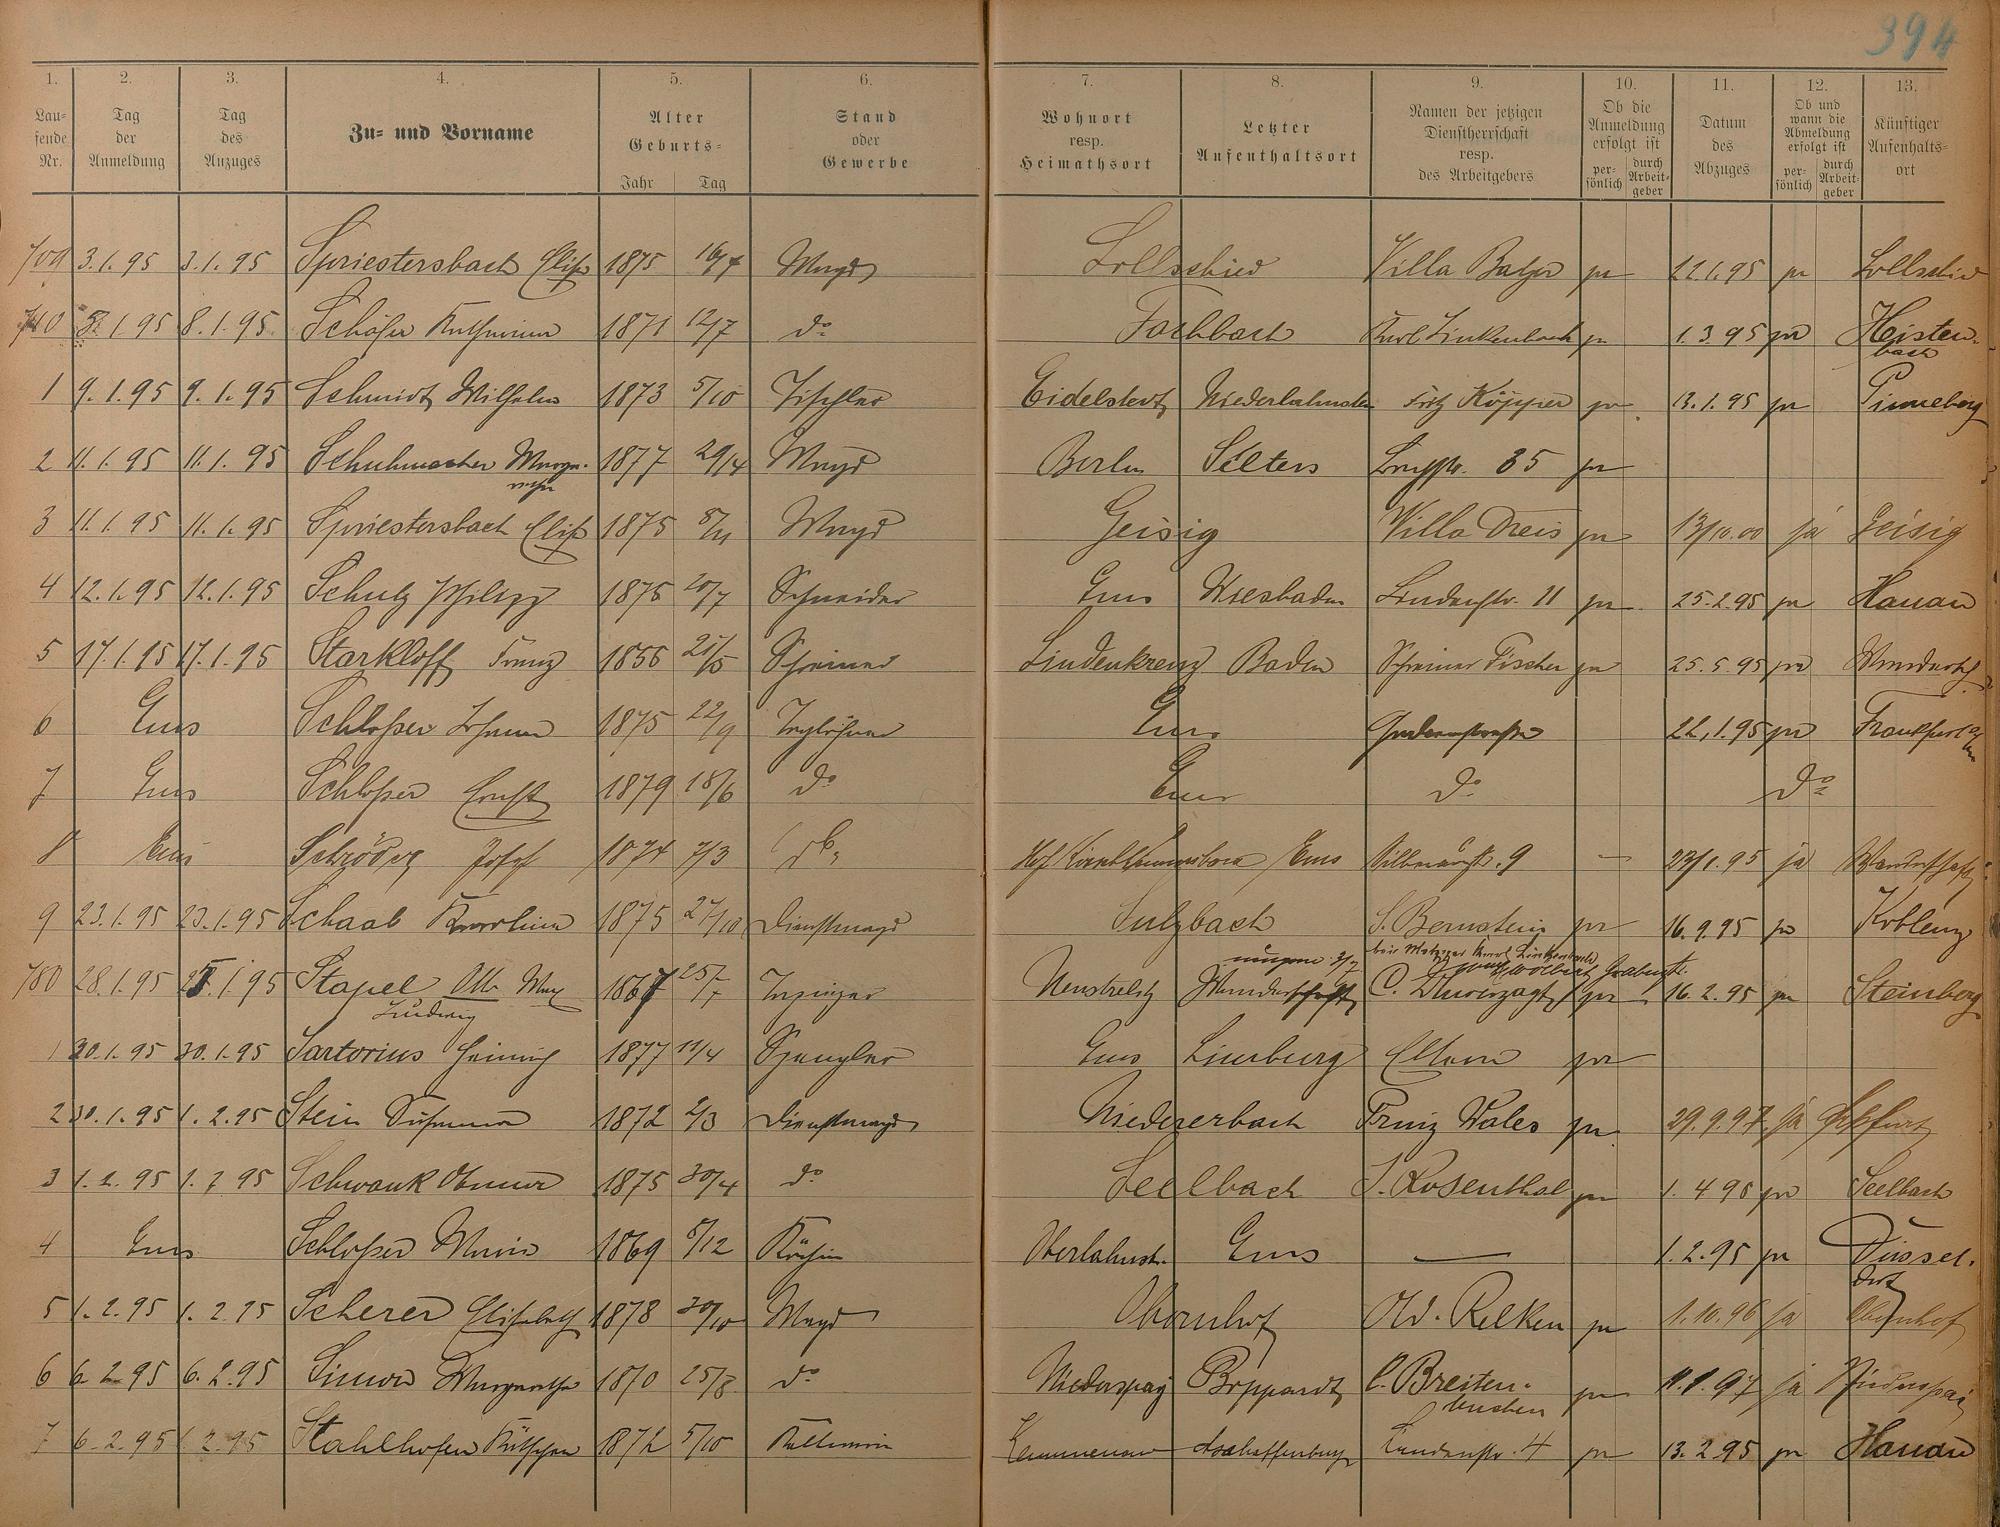 394
1. 2. 3. 4. 5. 6. 7. 8. 9. 10. 11. 12. 13.
Lau-
fende
Nr.
Tag
der
Anmeldung
Tag
des
Anzuges
Zu- und Vorname
Alter
Geburts-
Jahr Tag
Stand
oder
Gewerbe
Wohnort
resp.
Heimathsort
Letzter
Aufenthaltsort
Namen der jetzigen
Dienstherrschaft
resp.
des Arbeitgebers
Ob die
Anmeldung
erfolgt ist
per-
sönlich
durch
Arbeit-
geber
Datum
des
Abzuges
Ob und
wann die
Abmeldung
erfolgt ist
per-
sönlich
durch
Arbeit-
geber
Künftiger
Aufenthalts-
ort
709 3.1.95 3.1.95 Spriestersbach Elise 1875 Magd Lollschied Villa Balzer pr 22.1.95 pr Lollschied
8.1.95 Schäfer Katharina 1871 12/7 do Fachbach Karl Linkenbach pr 1.3.95 pr Heisten-
bach
1 9.1.95 9.1.95 Schmidt Wilhelm 1873 5/10 Tischler Eidelstedt Niederlahnstein Fritz Köpper pr 13.1.95 pr Pinneberg
2 11.1.95 11.1.95 Schuhmacher Marga-
retha
1877 29/4 Magd Berlin Selters 35 pr
3 11.1.95 11.1.95 Spriestersbach Elise 1875 8/11 Magd Geisig Villa Dreis pr 13/10.00 ja Geisig
4 12.1.95 12.1.95 Schulz Philipp 1875 20/7 Schneider Ems Wiesbaden Lindenstr. 11 pr 25.2.95 pr Hanau
5 17.1.95 17.1.95 Starkloff Franz 1856 Schreiner Lindenkreuz Baden Schreiner Fischer pr 25.5.95 pr
6 Ems Schloßer Johann 1875 22/9 Taglöhner Ems 22.1.95 pr Frankfurt a/M
7 Ems Schloßer Ernst 1879 18/6 do Ems do do
8 Ems Schröder Josef 1874 7/3 do Ems 9 — 23/1.95 ja Wanderschaft
9 23.1.95 23.1.95 Schaab Karolina 1875 27/10 Dienstmagd Sulzbach S. Bernstein pr 16.9.95 pr Koblenz
beim Metzger Karl Linkenbach
780 28.1.95 Stapel Otto Max
Ludwig
1867 25/7 Tapezier Neustrelitz Wanderschaft pr 16.2.95 pr Steinberg
1 30.1.95 30.1.95 Sartorius Heinrich 1877 11/4 Spengler Ems Limburg Eltern pr
2 30.1.95 1.2.95 Stein Susanna 1872 2/3 Dienstmagd Niedererbach Prinz Wales pr 29.9.97 ja
3 1.2.95 1.2.95 Schwank Anna 1875 30/4 do Seelbach S. Rosenthal pr 1.4.95 pr Seelbach
4 Ems Schloßer Maria 1869 5/12 Köchin Oberlahnst. Ems — 1.2.95 pr Düssel-
dorf
5 1.2.95 1.2.95 Scherer Elisabeth 1878 30/10 Magd Obernhof Ad. Relken pr 1.10.96 ja Obernhof
6 6.2.95 6.2.95 Simon Margaretha 1870 25/8 do Niederspay Boppard C. Breiten-
buchen
pr 11.1.97 ja Niederspay
7 6.2.95 Stahlhofen 1872 5/10 Kellnerin Kemmenau Aschaffenburg 4 pr 13.2.95 pr Hanau